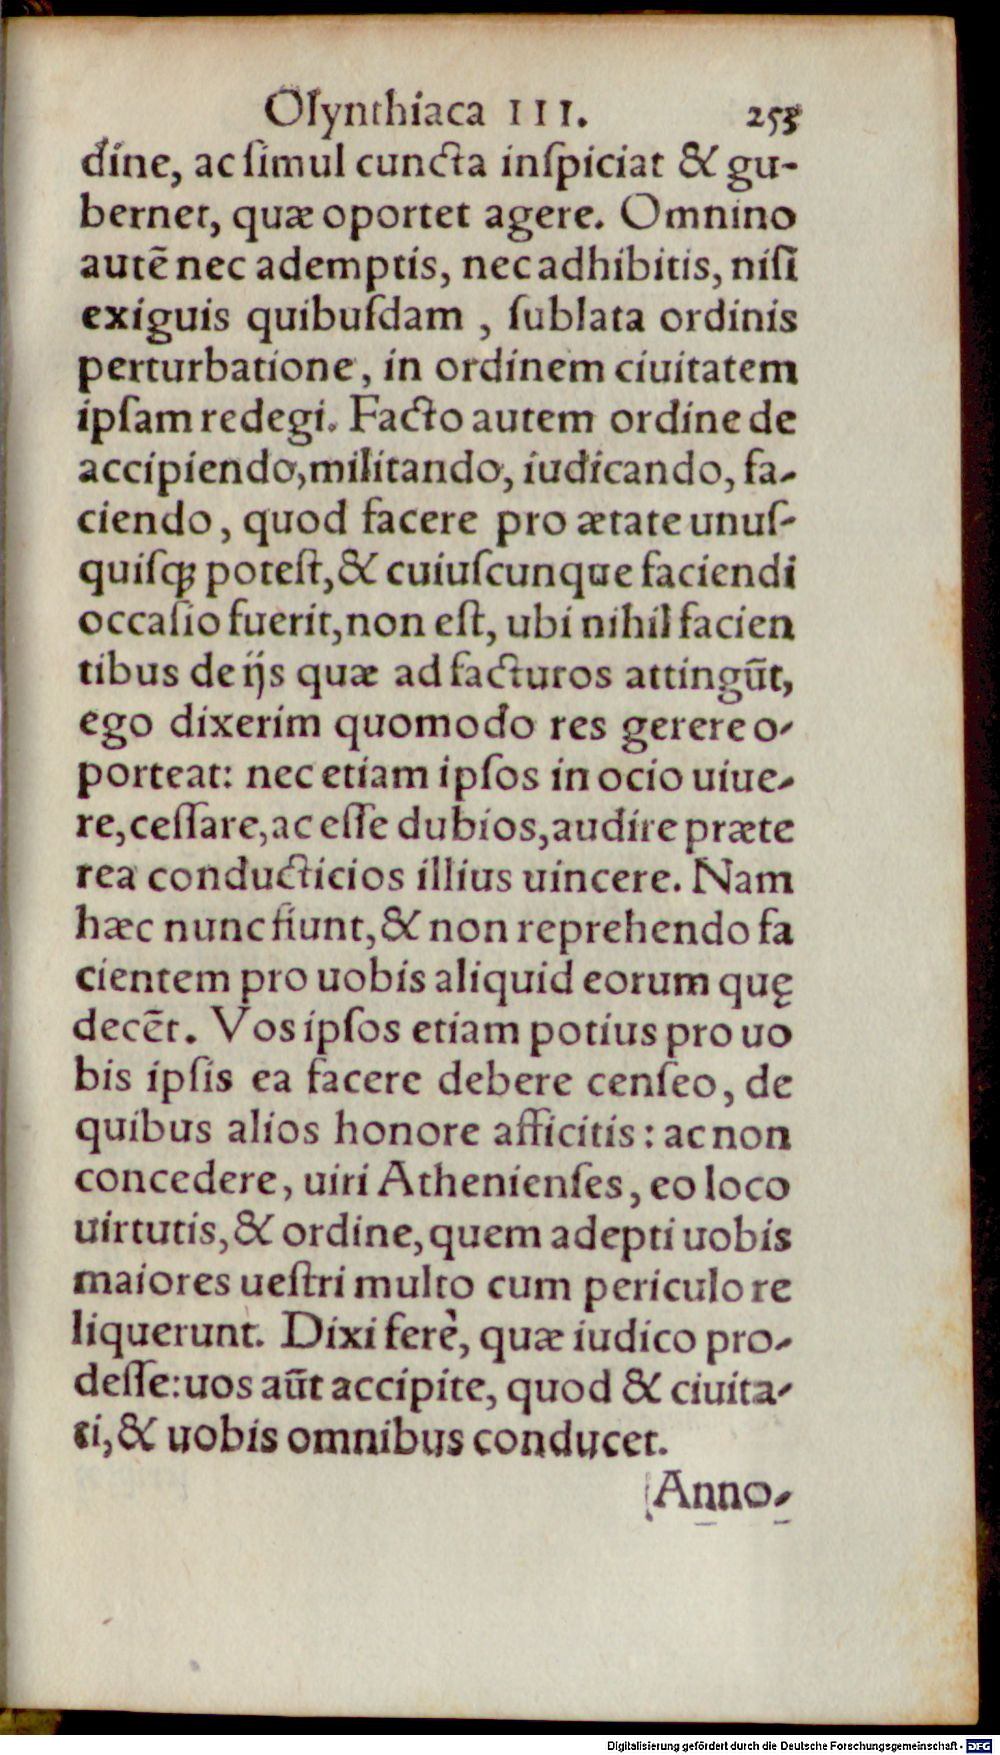 Olynthiaca III. 253
dine, ac ſimul cuncta inſpiciat & gu-
bernet, quæ oportet agere. Omnino
autẽ nec ademptis, nec adhibitis, niſi
exiguis quibuſdam, ſublata ordinis
perturbatione, in ordinem ciuitatem
ipſam redegi. Facto autem ordine de
accipiendo, militando, iudicando, fa-
ciendo, quod facere pro ætate unuſ-
quiſq; poteſt, & cuiuſcunque faciendi
occaſio fuerit, non eſt, ubi nihil facien
tibus de ijs quæ ad facturos attingũt,
ego dixerim quomodo res gerere o-
porteat: nec etiam ipſos in ocio uiue-
re, ceſſare, ac eſſe dubios, audire præte
rea conducticios illius uincere. Nam
hæc nunc fiunt, & non reprehendo fa
cientem pro uobis aliquid eorum quę
decẽt. Vos ipſos etiam potius pro uo
bis ipſis ea facere debere cenſeo, de
quibus alios honore afficitis: ac non
concedere, uiri Athenienſes, eo loco
uirtutis, & ordine, quem adepti uobis
maiores ueſtri multo cum periculo re
liquerunt. Dixi ferè, quæ iudico pro-
deſſe: uos aũt accipite, quod & ciuita-
ti, & uobis omnibus conducet.
Anno-
Digitalisierung gefördert durch die Deutsche Forschungsgemeinschaft - DFG